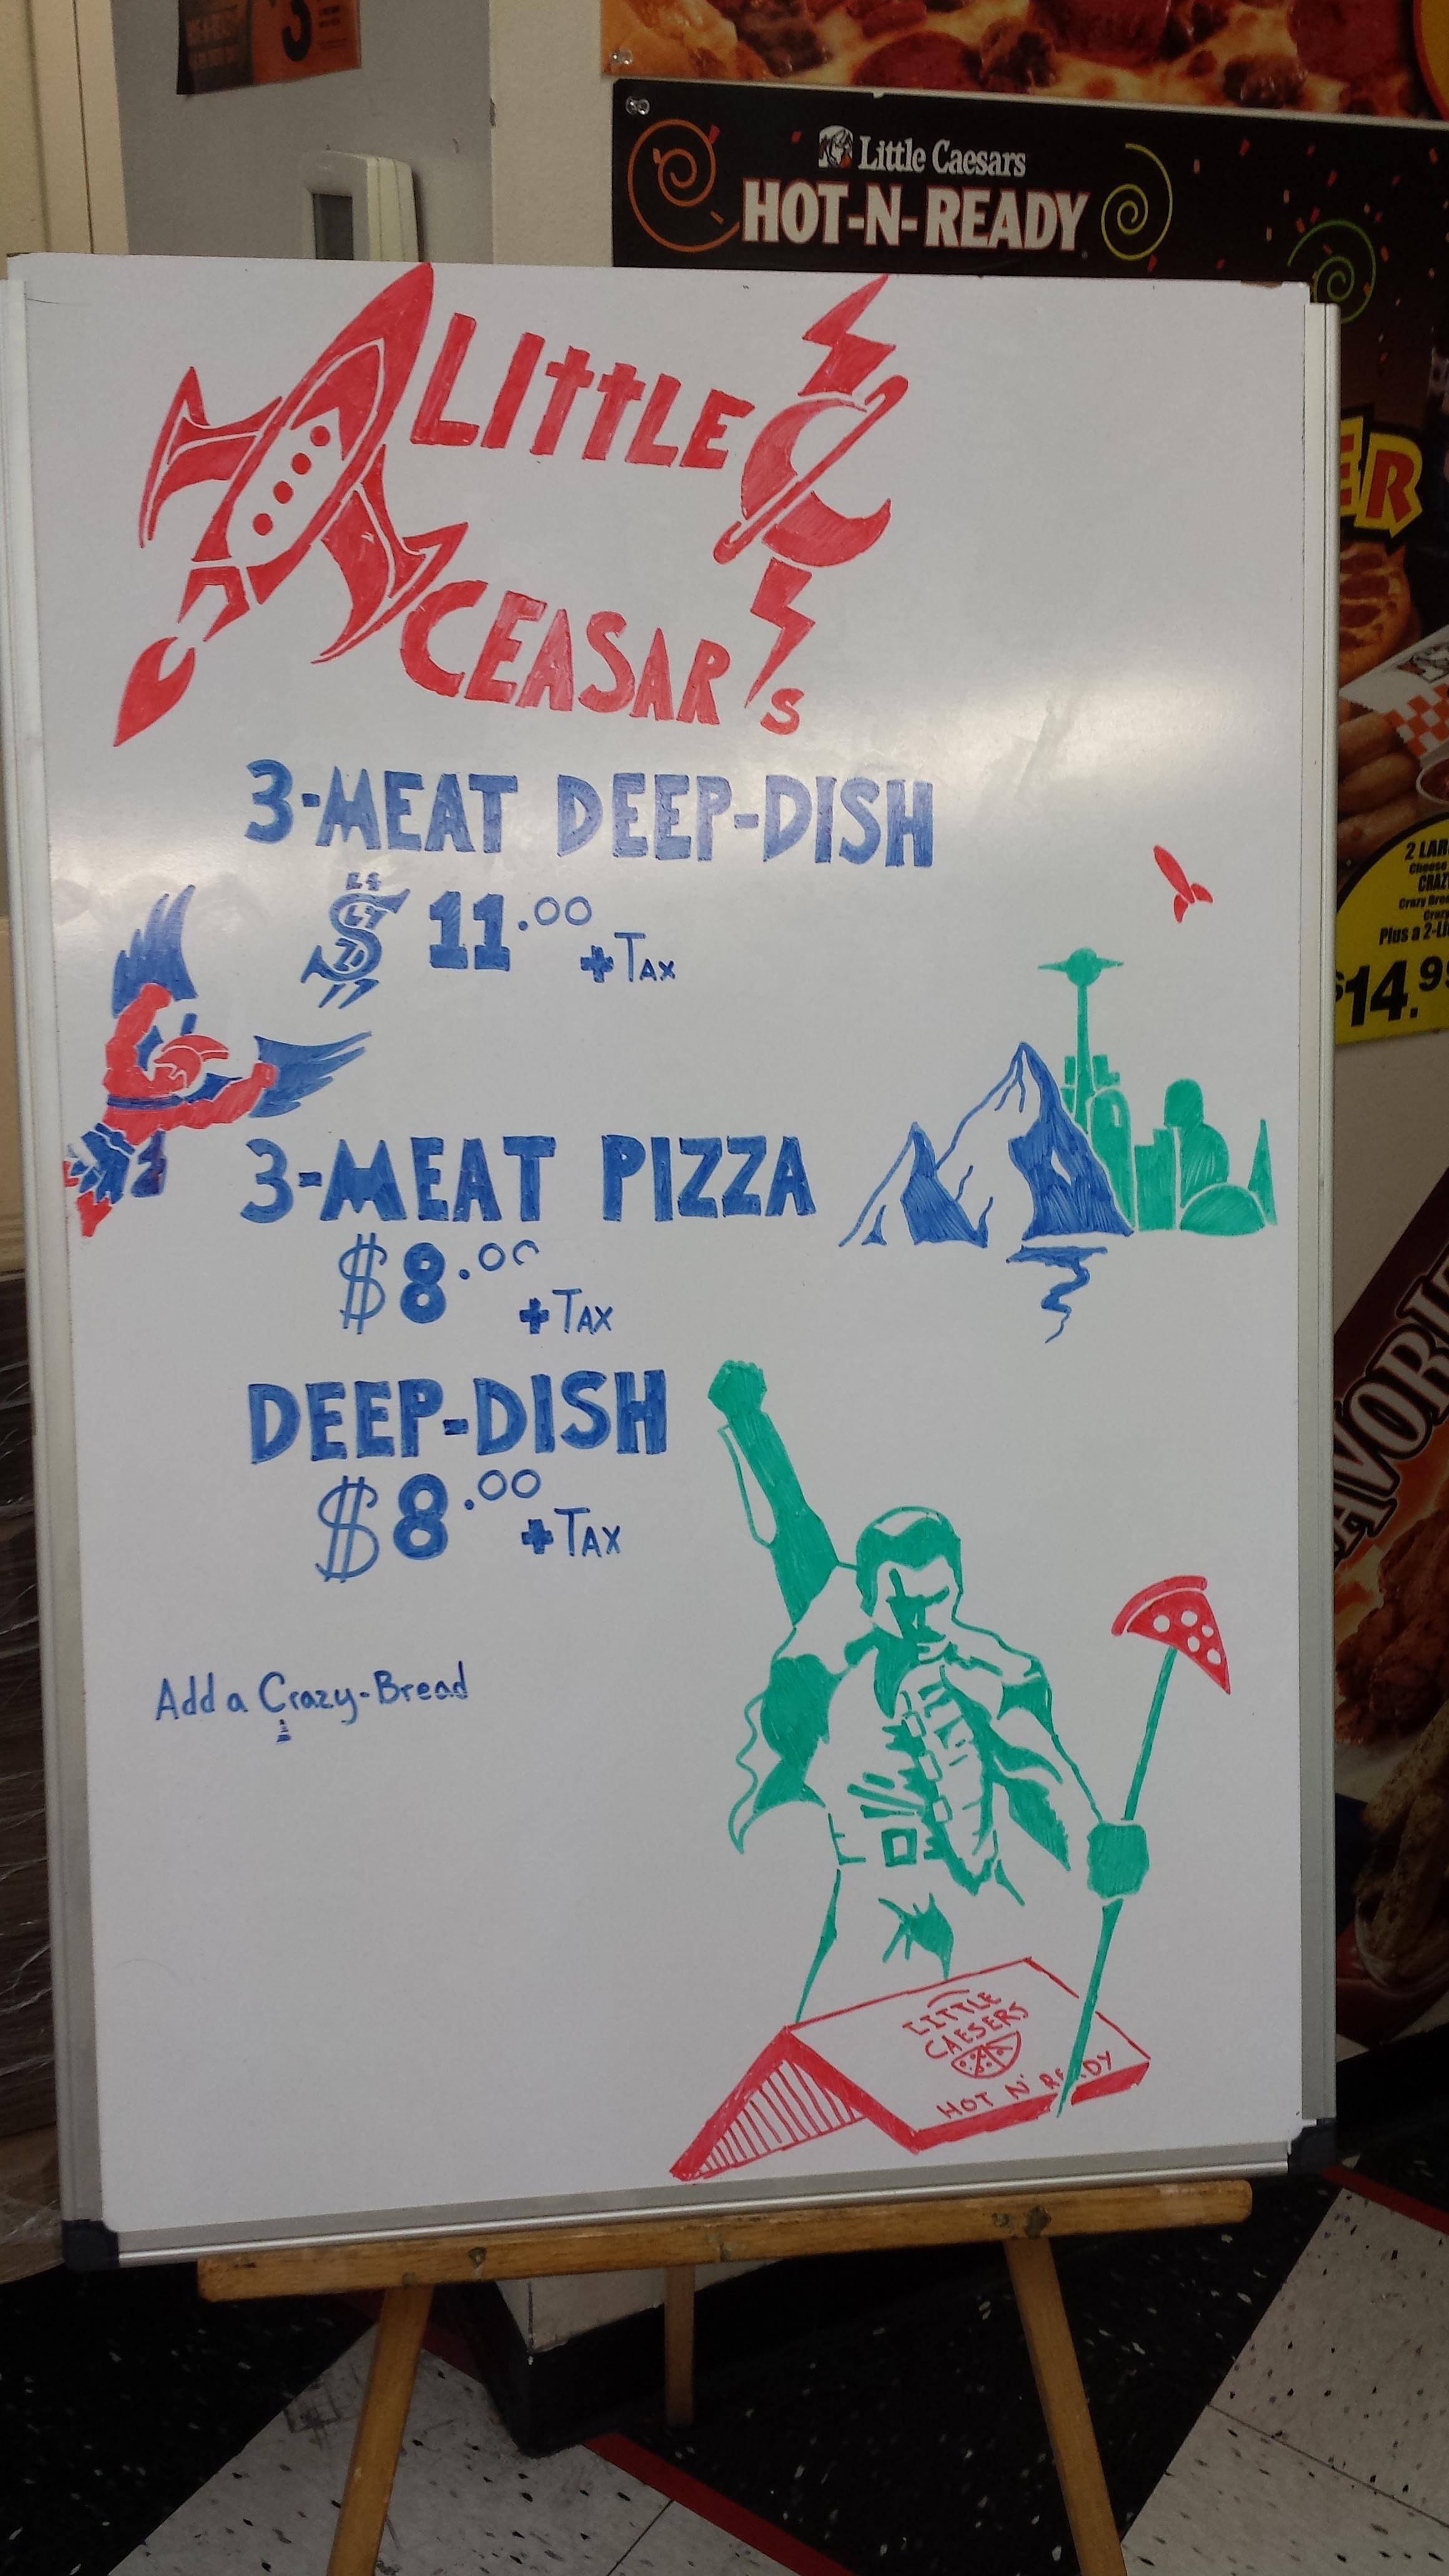 Little Caesars
HOT-N-READY
LITTLE
CEASAR's
3-MEAT DEEP-DISH
$11.00
+TAX
3-MEAT PIZZA
$8.00
+TAX
DEEP-DISH
$8.00
+TAX
Add a Crazy-Bread
LITTLE
CAESERS
HOT N' READY
ER
2 LAR
Cheese
CRAZ
Crazy Bre
Crazy
Plus a 2-Li
$14.99
AVORIT
3